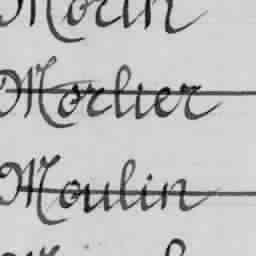 Morin
Morlier
Moulin